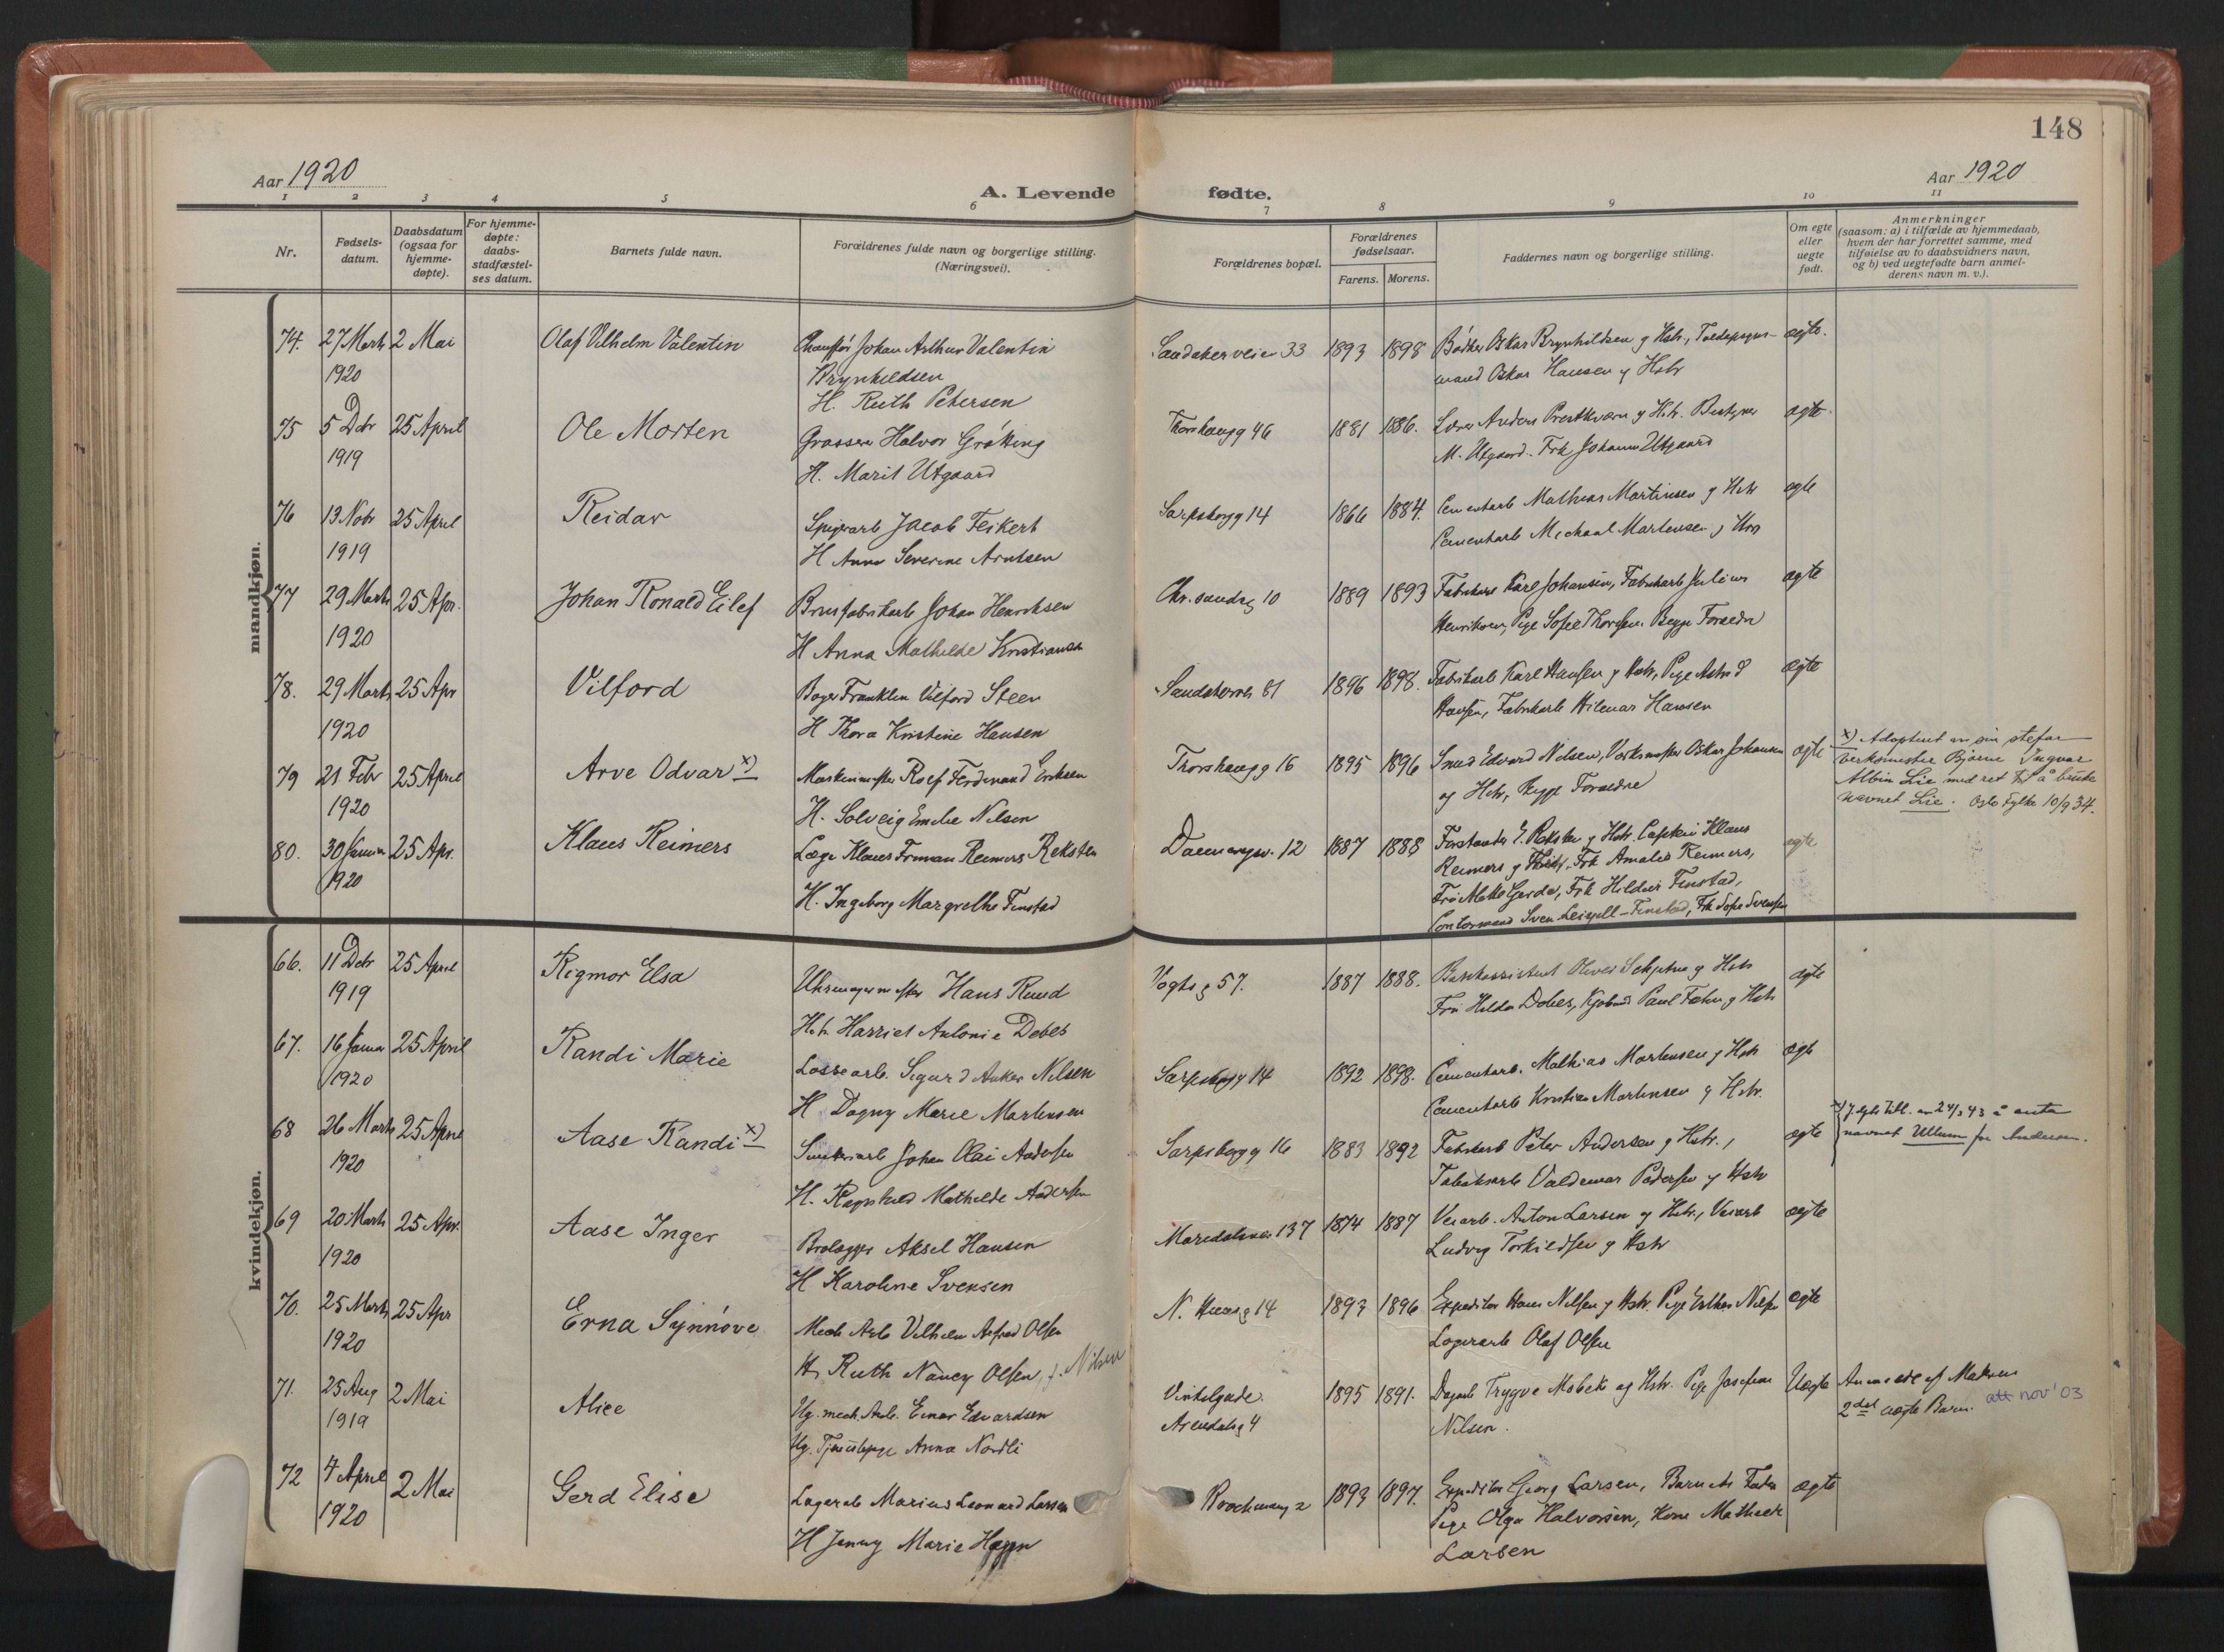 148
Aar 1920
Aar 1920
A. Levende fødte.
1 2 3 4 5 6 7 8 9 10 11
Nr.
Fødsels-
datum.
Daabsdatum
(ogsaa for
hjemme-
døpte).
For hjemme-
døpte:
daabs-
stadfæstel-
ses datum.
Barnets fulde navn.
Forældrenes fulde navn og borgerlige stilling.
(Næringsvei).
Forældrenes bopæl.
Forældrenes
fødselsaar.
Farens. Morens.
Faddernes navn og borgerlige stilling.
Om egte
eller
uegte
født.
Anmerkninger
(saasom: a) i tilfælde av hjemmedaab,
hvem der har forrettet samme, med
tilføielse av to daabsvidners navn,
og b) ved uegtefødte barn anmel-
derens navn m. v.).
mandkjøn.
74. 27 Marts 2 Mai Olaf Vilhelm Valentin Chauffør Johan Arthur Valentin Sandakerveien 33 1893 1898 Bødker Oskar Brynhildsen g Hstr., egte.
1920 Brynhildsen mand Oskar Hansen g Hstr
H. Ruth Petersen
75 5 Dcbr 25 April Ole Morten Grosserer Halvor Grøtting Thorshaugg 46 1881 1886. Lærer Anders Prestkværn g Hstr. Bestyrer egte.
1919 H. Marit Utgaard M. Utgaard. Frk Johanne Utgaard
76 13 Nobr 25 April Reidar Spigerarb Jacob Feikert Sarpsborgg 14 1866 1884. Cementarb Mathias Martinsen g Hstr egte
1919 H Anna Severine Arntsen Cementarb Michael Martensen g Hstr
77 29 Marts 25 Apr. Johan Ronald Eilef Brusfabrikarb Johan Henriksen Chr.sandsg 10 1889 1893 Fabrikarb Karl Johansen, Fabrikarb Julius egte
1920 H Anna Mathilde Kristiansen Henriksen, Pige Sofie Thorsen. Begge Forældre
78. 29 Marts 25 Apr Vilford Bager Franklin Vilford Steen Sandakerveien 81 1896 1898. Fabrikarb Karl Hansen g Hstr, Pige Astrid egte
1920 H Thora Kristine Hansen Hansen, Fabrikarb Hilmar Hansen
79 21 Febr 25 April Arve Odvar x) Maskinmester Rolf Ferdinand Eriksen Thorshaugg 16 1895 1896 Smed Edvard Nilsen, Verksmester Oskar Johansen egte x) Adoptert av sin stefar
1920 H. Solveig Emilie Nilsen og Hstr, Begge Forældre verksmester Bjarne Ingvar
Albin Lie med ret til å bruke
navnet Lie. Oslo Fylke 10/9 34.
80. 30 Januar 25 Apr. Klaus Reimers Læge Klaus Froman Reimers Reksten Dannevigsv. 12 1887 1888 Forstander E. Reksten g Hstr. Captein Klaus egte
1920 H. Ingeborg Margrethe Finstad Reimers g Hstr. Frk Amalie Reimers,
Fru Mette Gerda, Frk Hildur Finstad,
Contormand Sven Finstad, Frk Sofie Svensen
kvindekjøn.
66. 11 Dcbr 25 April Rigmor Elsa Uhrmagermester Hans Ruud Vogtsg 57. 1887 1888. Oliver g Hstr egte
1919 Hstr. Harriet Antonie Debes Fru Hilda Debes, Kjøbmd Paul g Hstr
67. 16 Januar 25 April Randi Marie Lossearb. Sigurd Anker Nilsen Sarpsborgg 14 1892 1898. Cementarb. Mathias Martensen g Hstr egte
1920 H. Dagny Marie Martensen Cementarb Kristian Martensen g Hstr.
68 26 Marts 25 April Aase Randi x) Johan Olai Andersen Sarpsborgg 16 1883 1892 Fabrikarb Peter Andersen g Hstr., egte x) Iflg. till. av 24/3 43 å anta
1920 H. Ragnhild Mathilde Andersen Tobaksarb Valdemar Pedersen g Hstr navnet Ullum for Andersen.
69 20 Marts 25 Apr. Aase Inger Brolægger Aksel Hansen Maridalsveien 137 1874 1887 Veiarb. Anton Larsen g Hstr., Veiarb egte
1920 H Karoline Svensen Ludvig Torkildsen g Hstr
70. 25 Marts 25 Apr Erna Synnøve Mek Arb Vilhelm Alfred Olsen 14 1893 1896 Expeditør Hans Nilsen g Hstr. Pige Esther Nilsen egte
1920 H. Ruth Nancy Olsen, f. Nilsen Lagerarb Olaf Olsen
71. 25 Aug 2 Mai Alice Ug. mech. Arb. Einar Edvardsen Vinkelgade. 1895 1891. Trygve Mobek og Hstr. Pige Josefine Uegte Anmeldt af Moderen
1919 Ug. Tjenestepige Anna Nordli Arendalsg 4 Nilsen. 2det uegte Barn. att nov '03
72 7 April 2 Mai Gerd Elise Lagerarb Marius Leonard Larsen 2 1893 1897. Expeditør Georg Larsen, Barnets Fader egte
1920 H Jenny Marie Pige Olga Halvorsen, Kone Mathea
Larsen